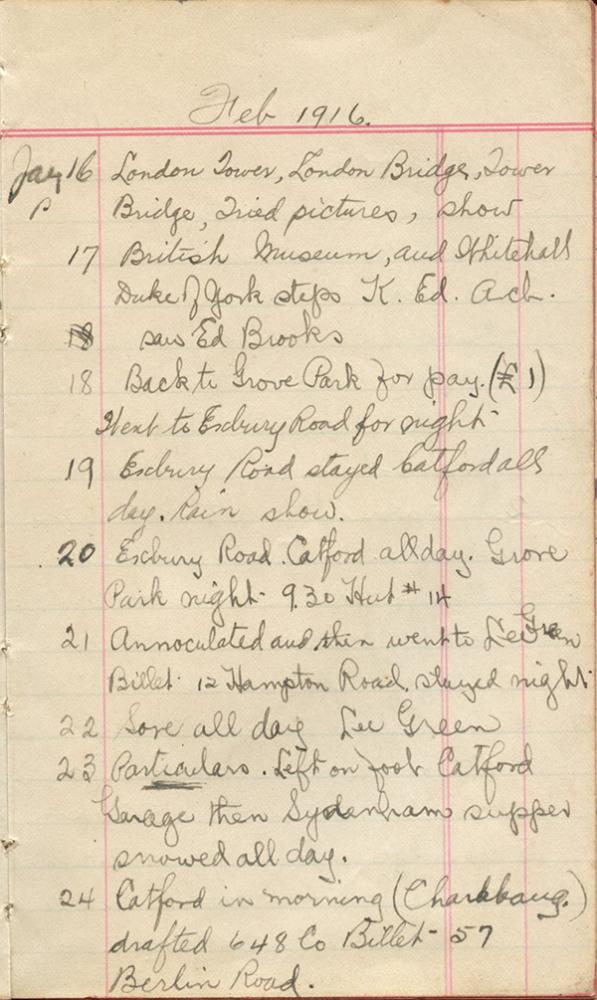 Feb 1916.
Jan 16 London Tower, London Bridge, Tower
Bridge, Tried pictures, show
17 British Museum, and Whitehall
Duke of York steps K. Ed. Ach.
18 saw Ed Brooks
18 Back to Grove Park for pay. (£1)
Went to Exbury Road for night
19 Exbury Road stayed Catford all
day. Rain show.
20 Exbury Road. Catford all day. Grove
Park night 9.30 Hut #14
21 Annoculated and then went to Lee Green
Billet 12 Hampton Road, stayed night.
22 Sore all day Lee Green
23 Particulars. Left on foot Catford
Garage then Sydenham supper
snowed all day.
24 Catford in morning
drafted 648 Co Billet 57
Berlin Road.